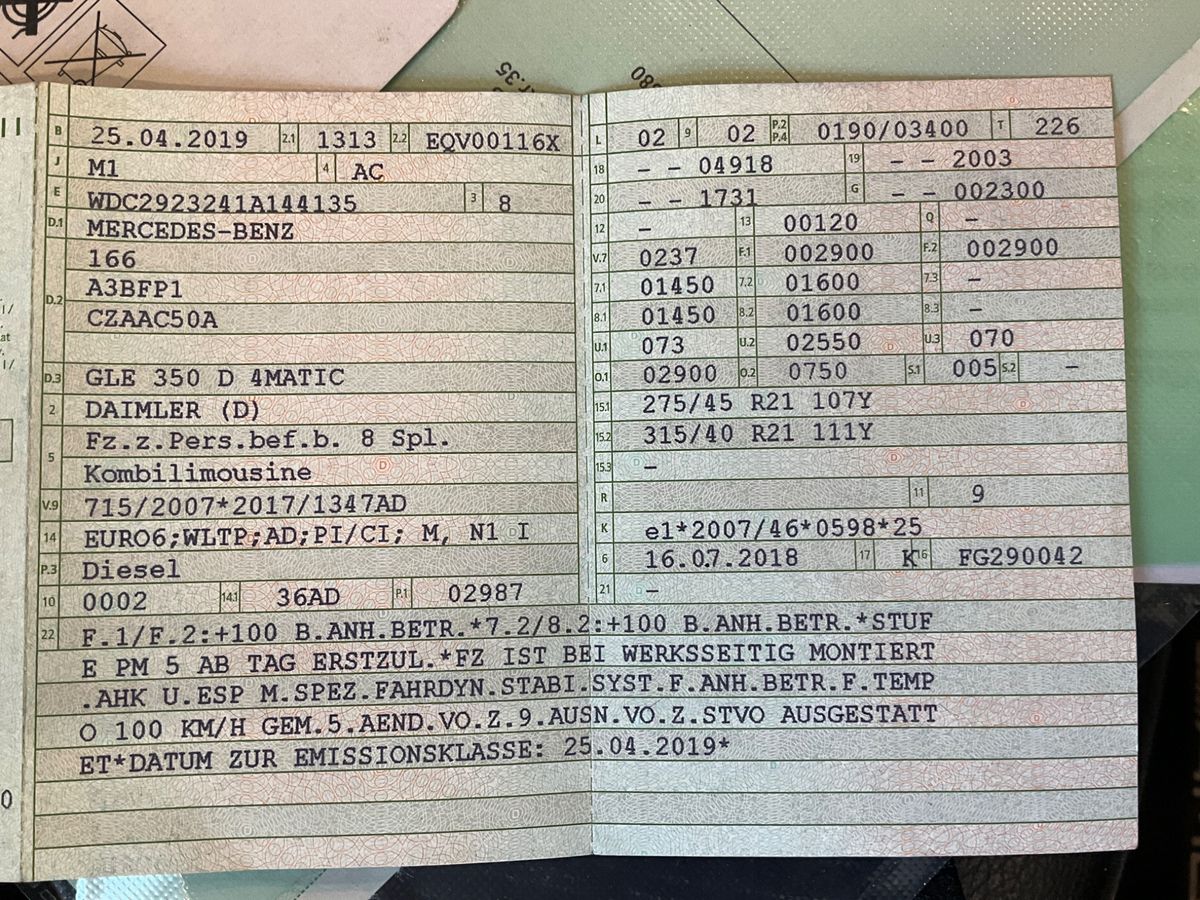 F.35
080
B 25.04.2019 2.1 1313 2.2 EQV00116X
J M1 4 AC
E WDC2923241A144135 3 8
D.1 MERCEDES-BENZ
166
D.2 A3BFP1
CZAAC50A
D.3 GLE 350 D 4MATIC
2 DAIMLER (D)
Fz.z.Pers.bef.b. 8 Spl.
5 Kombilimousine
V.9 715/2007*2017/1347AD
14 EURO6;WLTP;AD;PI/CI; M, N1 I
P.3 Diesel
10 0002 14.1 36AD P.1 02987
L 02 9 02 P.2 P.4 0190/03400 T 226
18 – – 04918 19 – – 2003
20 – – 1731 G – – 002300
12 – 13 00120 Q –
V.7 0237 F.1 002900 F.2 002900
7.1 01450 7.2 01600 7.3 –
8.1 01450 8.2 01600 8.3 –
U.1 073 U.2 02550 U.3 070
O.1 02900 O.2 0750 S.1 005 S.2 –
15.1 275/45 R21 107Y
15.2 315/40 R21 111Y
15.3 –
R 11 9
K e1*2007/46*0598*25
6 16.07.2018 17 K 16 FG290042
21 –
22 F.1/F.2:+100 B.ANH.BETR.*7.2/8.2:+100 B.ANH.BETR.*STUF
E PM 5 AB TAG ERSTZUL.*FZ IST BEI WERKSSEITIG MONTIERT
.AHK U.ESP M.SPEZ.FAHRDYN.STABI.SYST.F.ANH.BETR.F.TEMP
O 100 KM/H GEM.5.AEND.VO.Z.9.AUSN.VO.Z.STVO AUSGESTATT
ET*DATUM ZUR EMISSIONSKLASSE: 25.04.2019*